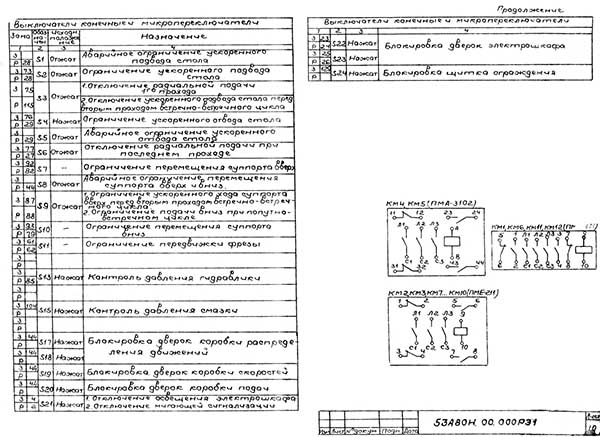 Продолжение
Выключатели конечные и микропереключатели
Зона
Обоз на-ч.
Исходн. положе-ние
Назначение
1 2 3 4
З Р 28 S1 Отжат Аварийное ограничение ускоренного
подвода стола
З 73 Р 28 S2 Отжат Ограничение ускоренного подвода
стола
З 75 Р 115 S3 Отжат 1. Отключение радиальной подачи
1го прохода
2. Отключение ускоренного подвода стола перед
вторым проходом встречно-встречного цикла
З 70 Р 29 S4 Нажат Ограничение ускоренного отвода стола
З Р 29 S5 Отжат Аварийное ограничение ускоренного
отвода стола
З 77 Р 27 S6 Отжат Отключение радиальной подачи при
последнем проходе
З 92 Р 82 S7 — Ограничение перемещения суппорта вверх
З Р 46 S8 Отжат Аварийное ограничение перемещения
суппорта вверх и вниз
З 87 Р 88 S9 Отжат 1. Ограничение ускоренного хода суппорта
вверх перед вторым проходом встречно-встреч-
ного цикла
2. Ограничение подачи вниз при попутно-
встречном цикле
З 93 Р 79 S10 — Ограничение перемещения суппорта
вниз
З 61 Р 62 S11 — Ограничение передвижки фрезы
З Р 85 S13 Нажат Контроль давления гидравлики
З 104 Р S15 Нажат Контроль давления смазки
З 46 Р S17 Нажат Блокировка дверок коробки распреде-
ления движений
З 46 Р S18 Нажат
З 46 Р S19 Нажат Блокировка дверок коробки скоростей
З 46 Р S20 Нажат Блокировка дверок коробки подач
З 4 Р 6 S21 Нажат 1. Отключение освещения электрошкафа
2. Отключение мигающей сигнализации
Выключатели конечные и микропереключатели
1 2 3 4
З 23 Р 24 S22 Нажат Блокировка дверок электрошкафа
З 25 Р 26 S23 Нажат
З Р S24 Нажат Блокировка щитка ограждения
КМ4, КМ5 (ПМА-3102)
11 12 23 24
Л1 Л2 Л3 А
С1 С2 С3 В
31 32 43 44
КМ1, КМ6, КМ11, КМ12
5 1 Л1 Л2 Л3 3 7 9
6 2 С1 С2 С3 4 8 10
КМ2, КМ3, КМ7... КМ10 (ПМЕ-211)
1 2 5 6
Л1 Л2 Л3 9
С1 С2 С3 10
3 4 7 8
53А80Н. 00. 000РЭ1
Изм Лист № докум Подп Дата